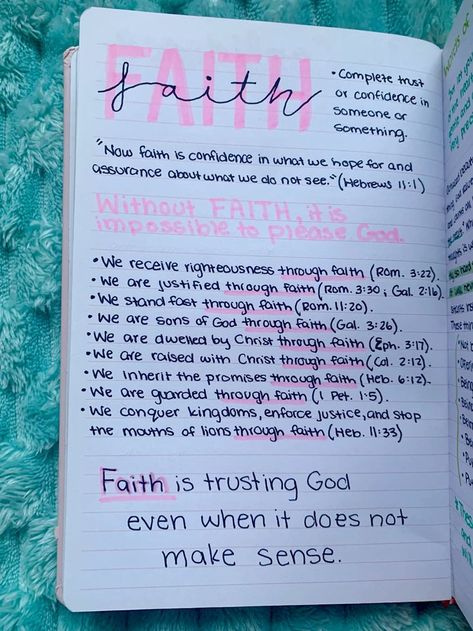 FAITH
faith
• Complete trust
or confidence in
someone or
something.
"Now faith is confidence in what we hope for and
assurance about what we do not see." (Hebrews 11:1)
Without FAITH, it is
impossible to please God.
• We receive righteousness through faith (Rom. 3:22).
• We are justified through faith (Rom. 3:30; Gal. 2:16).
• We stand fast through faith (Rom. 11:20).
• We are sons of God through faith (Gal. 3:26).
• We are dwelled by Christ through faith (Eph. 3:17).
• We are raised with Christ through faith (Col. 2:12).
• We inherit the promises through faith (Heb. 6:12).
• We are guarded through faith (1 Pet. 1:5).
• We conquer kingdoms, enforce justice, and stop
the mouths of lions through faith (Heb. 11:33)
Faith is trusting God
even when it does not
make sense.